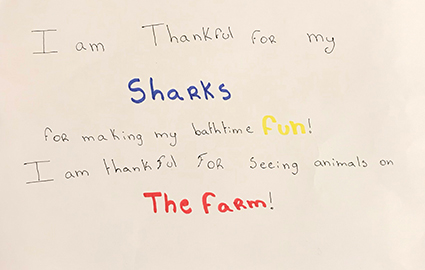 I am Thankful for my
Sharks
for making my bathtime fun!
I am thankful for seeing animals on
The farm!